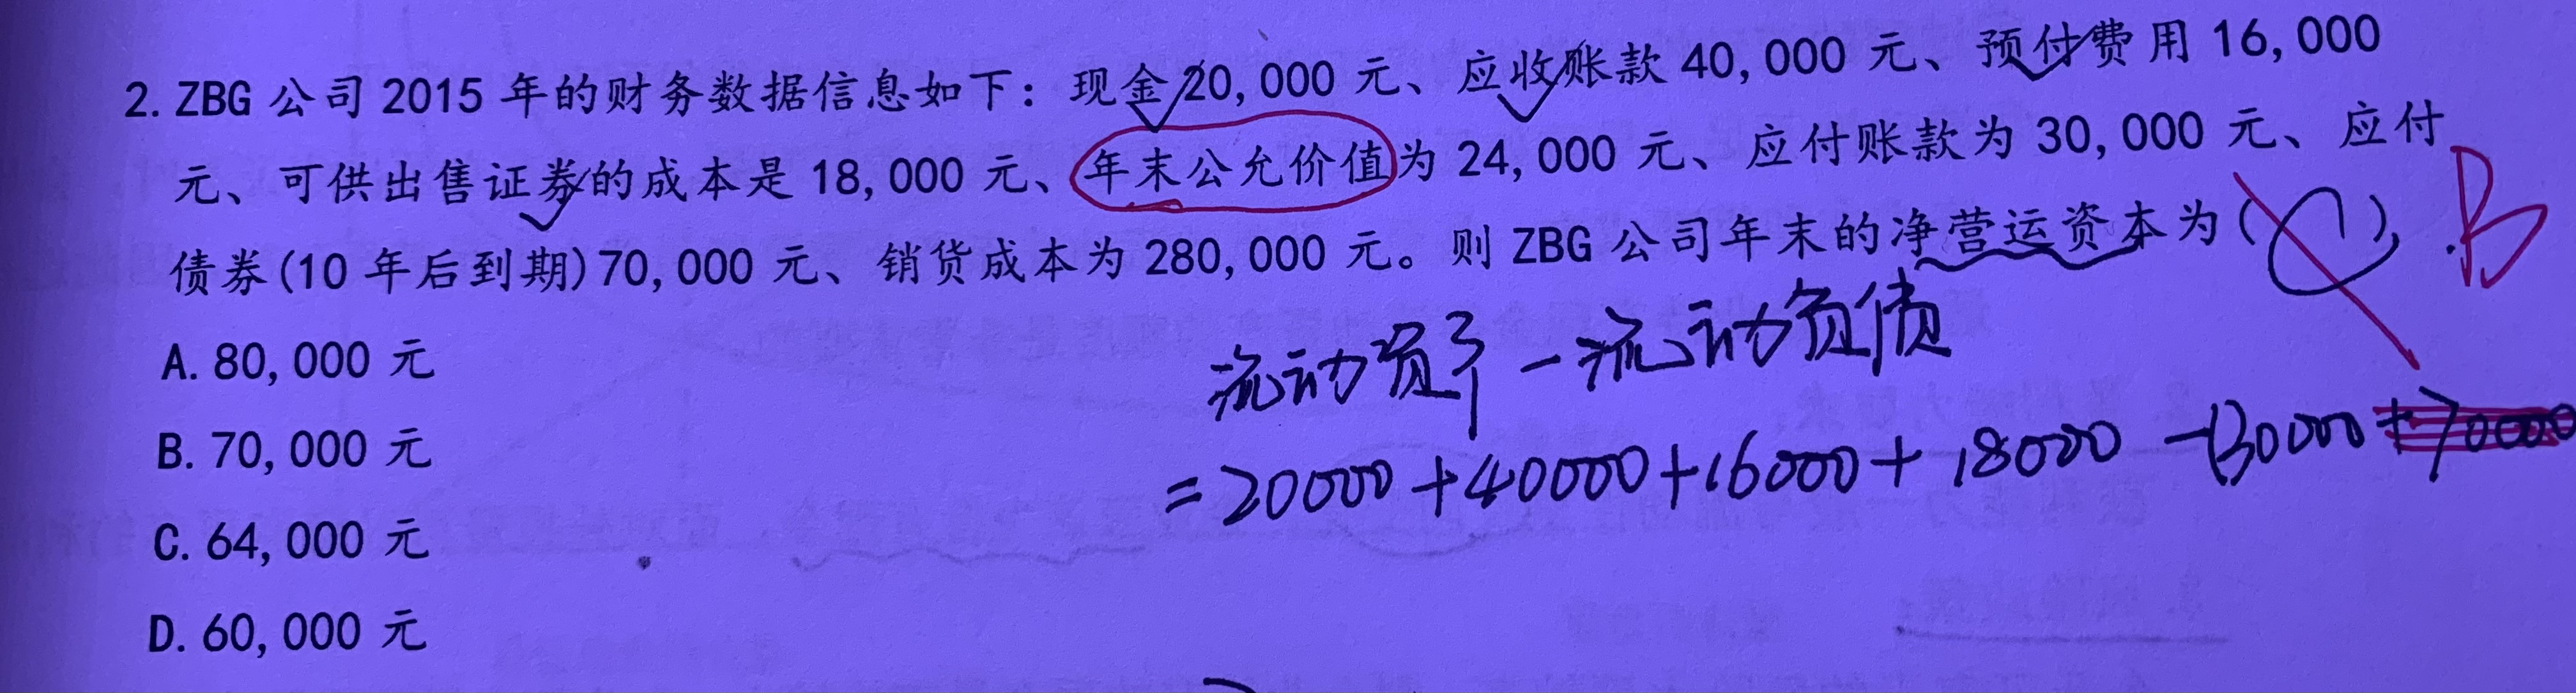 2. ZBG 公司 2015 年的财务数据信息如下：现金 20,000 元、应收账款 40,000 元、预付费用 16,000
元、可供出售证券的成本是 18,000 元、年末公允价值为 24,000 元、应付账款为 30,000 元、应付
债券(10 年后到期)70,000 元、销货成本为 280,000 元。则 ZBG 公司年末的净营运资本为( )。
B
流动资产-流动负债
=20000+40000+16000+18000-(30000+70000
A. 80,000 元
B. 70,000 元
C. 64,000 元
D. 60,000 元